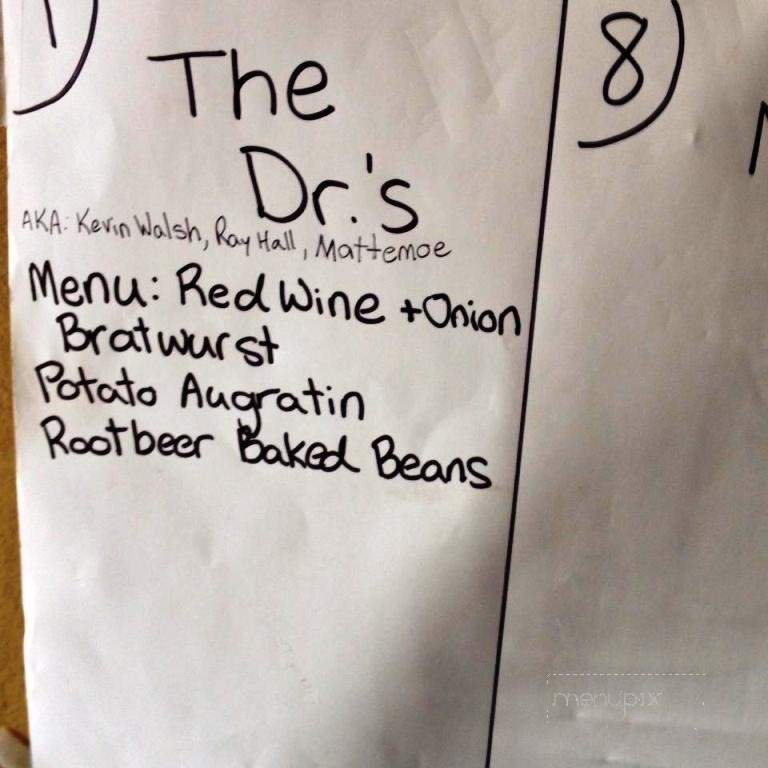 1)
The
Dr.'s
AKA: Kevin Walsh, Ray Hall, Mattemoe
Menu: Red Wine + Onion
Bratwurst
Potato Augratin
Rootbeer Baked Beans
8)
menupix